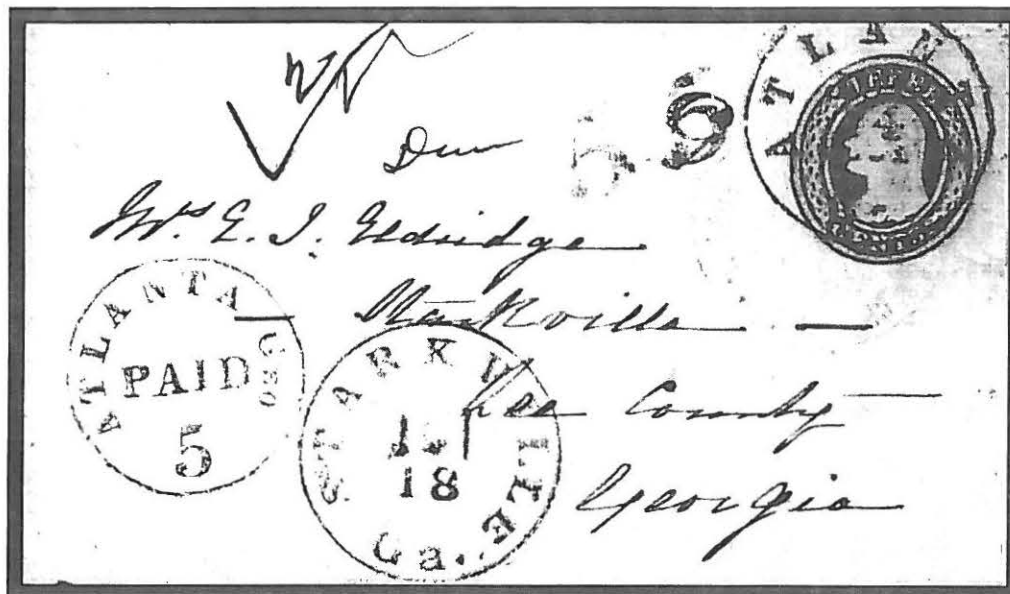 ATLANTA
CENTS
Due
6
Mrs. E. J. Eldridge
Starkville
Lee County
Georgia
ATLANTA GEO
PAID
5
STARKVILLE
18
Ga.